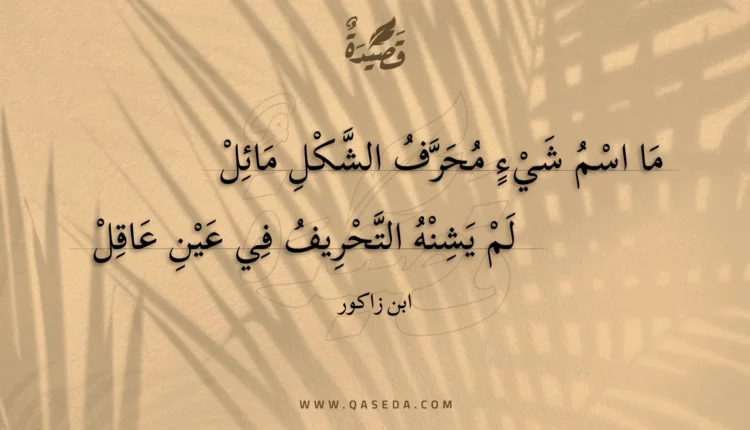 قَصِيدَةٌ
مَا اسْمُ شَيْءٍ مُحَرَّفُ الشَّكْلِ مَائِلْ
لَمْ يَشِنْهُ التَّحْرِيفُ فِي عَيْنِ عَاقِلْ
ابن زاكور
WWW.QASEDA.COM